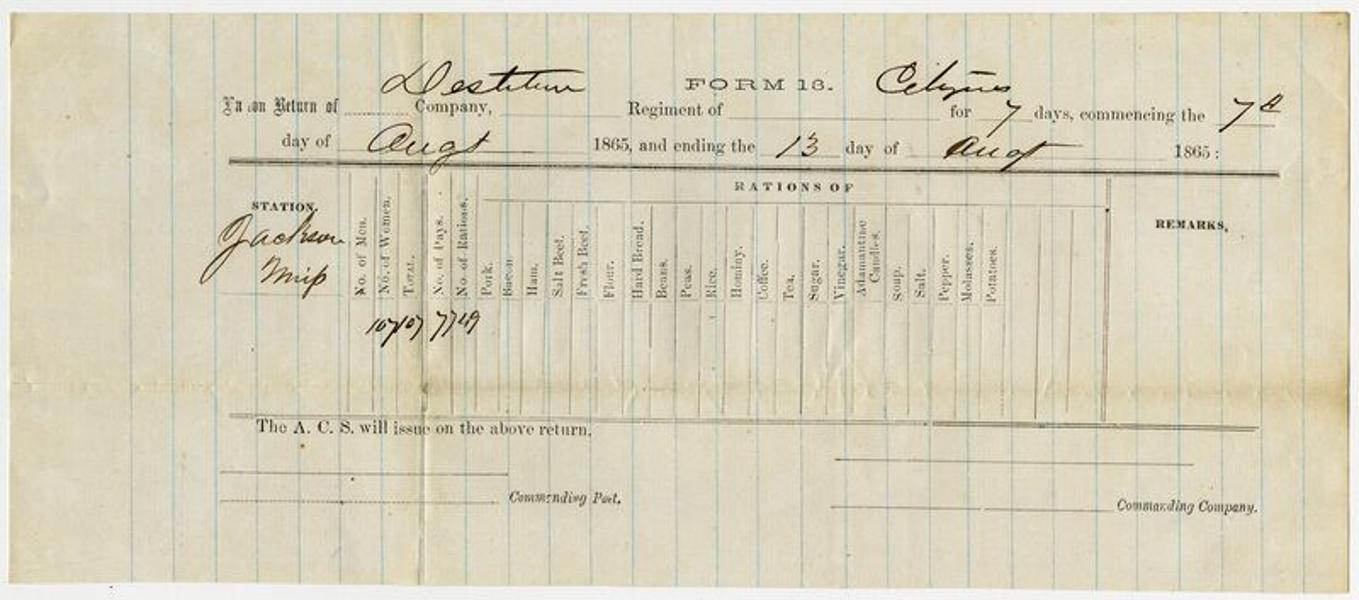 Destitute FORM 13. Citizens
Ration Return of Company, Regiment of for 7 days, commencing the 7th
day of Augt 1865, and ending the 13 day of Augt 1865:
RATIONS OF
STATION. No. of Men. No. of Women. TOTAL. No. of Days. No. of Rations. Pork. Bacon. Ham. Salt Beef. Fresh Beef. Flour. Hard Bread. Beans. Peas. Rice. Hominy. Coffee. Tea. Sugar. Vinegar. Adamantine Candles. Soap. Salt. Pepper. Molasses. Potatoes. REMARKS,
Jackson
Miss
107 107 7 749
The A. C. S. will issue on the above return.
Commanding Post.
Commanding Company.